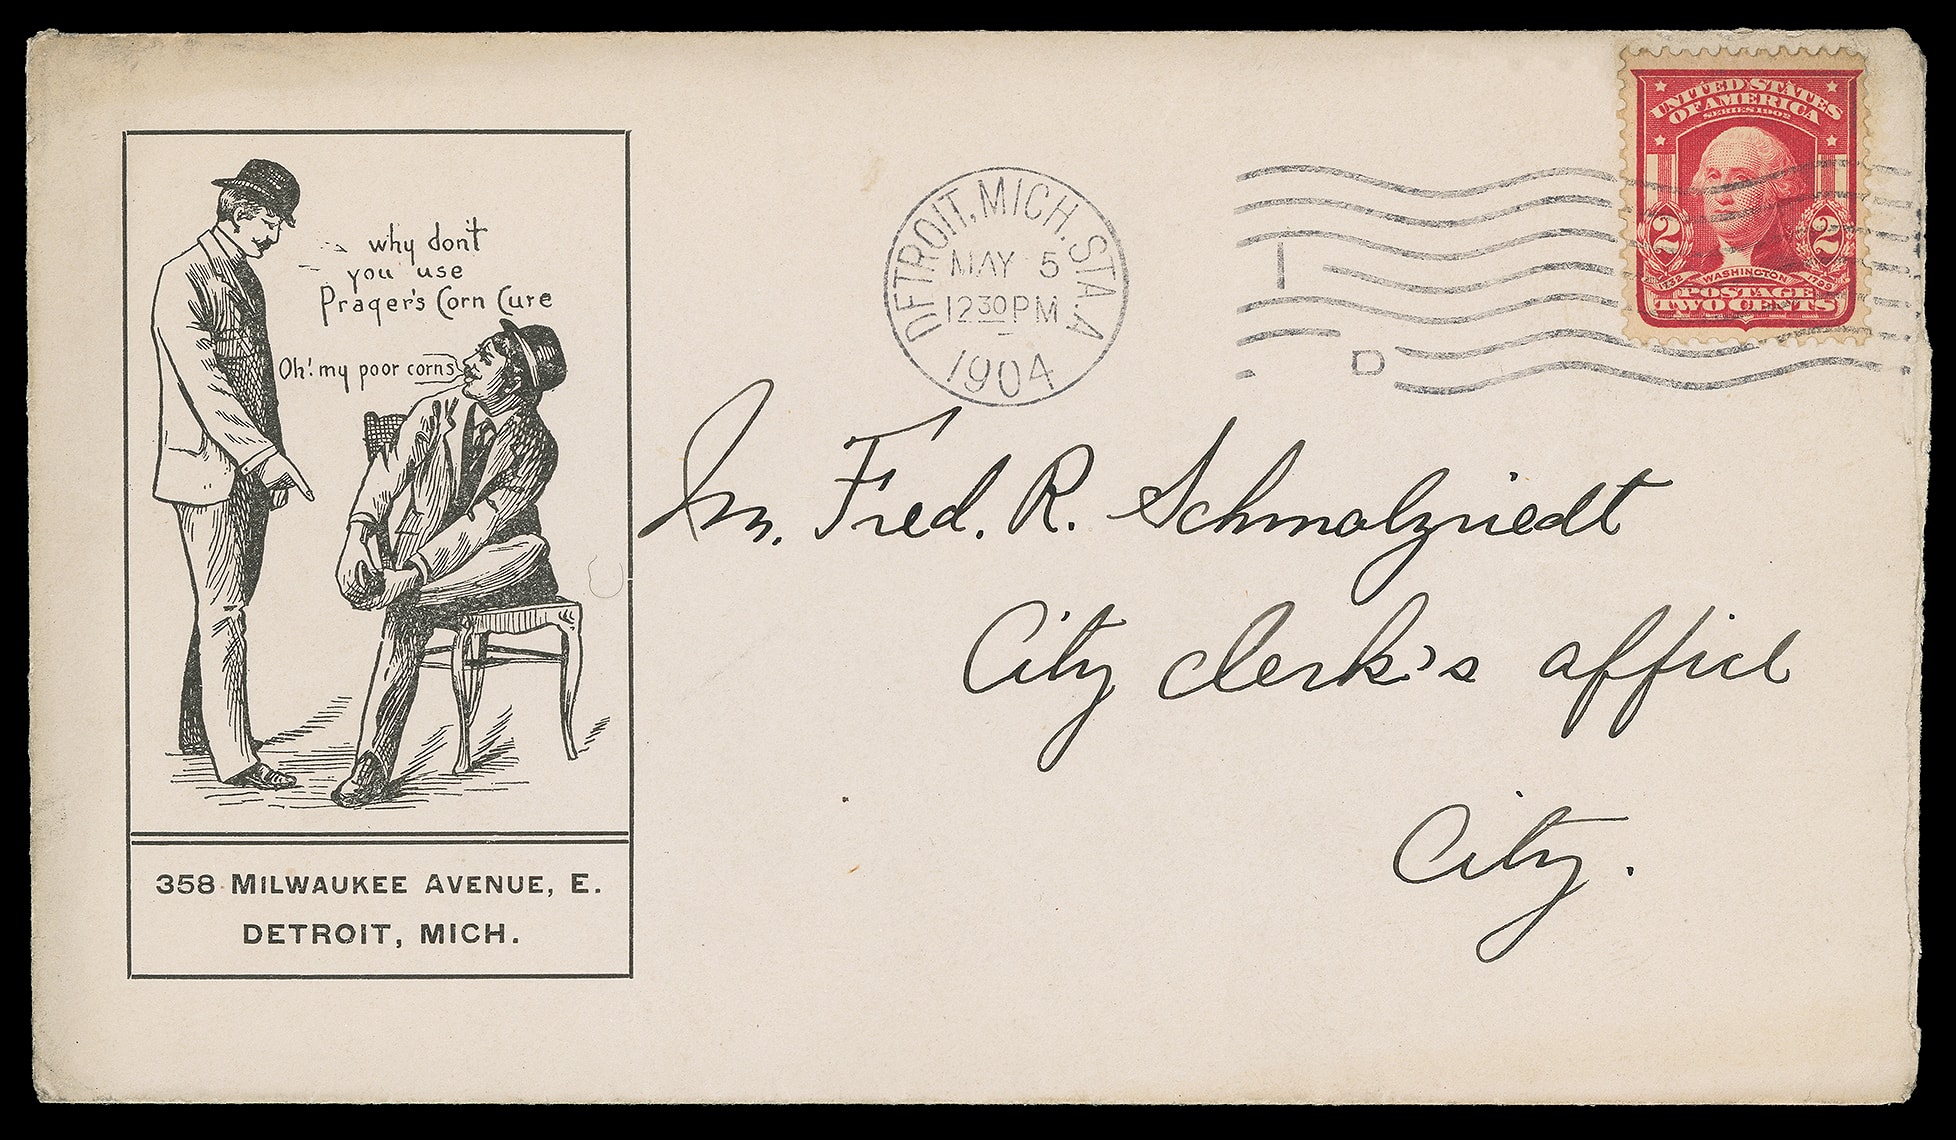 why don't
you use
Prager's Corn Cure
Oh! my poor corns
358 MILWAUKEE AVENUE, E.
DETROIT, MICH.
DETROIT, MICH. STA. A
MAY 5
12 30 PM
1904
I
D
UNITED STATES
OF AMERICA
SERIES 1902
2 2
1732 WASHINGTON 1799
POSTAGE
TWO CENTS
Mr. Fred. R. Schmalzriedt
City Clerk's office
City.